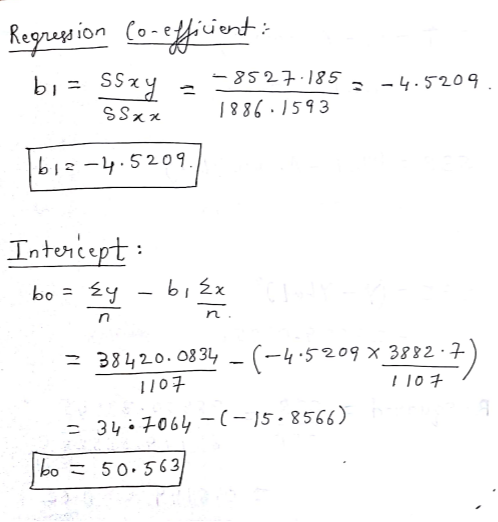 Regression Co-efficient:
b1 = SSxy / SSxx = -8527.185 / 1886.1593 = -4.5209.
b1 = -4.5209.
Intercept:
b0 = Σy / n - b1 Σx / n.
= 38420.0834 / 1107 - (-4.5209 × 3882.7 / 1107)
= 34.7064 - (-15.8566)
b0 = 50.563